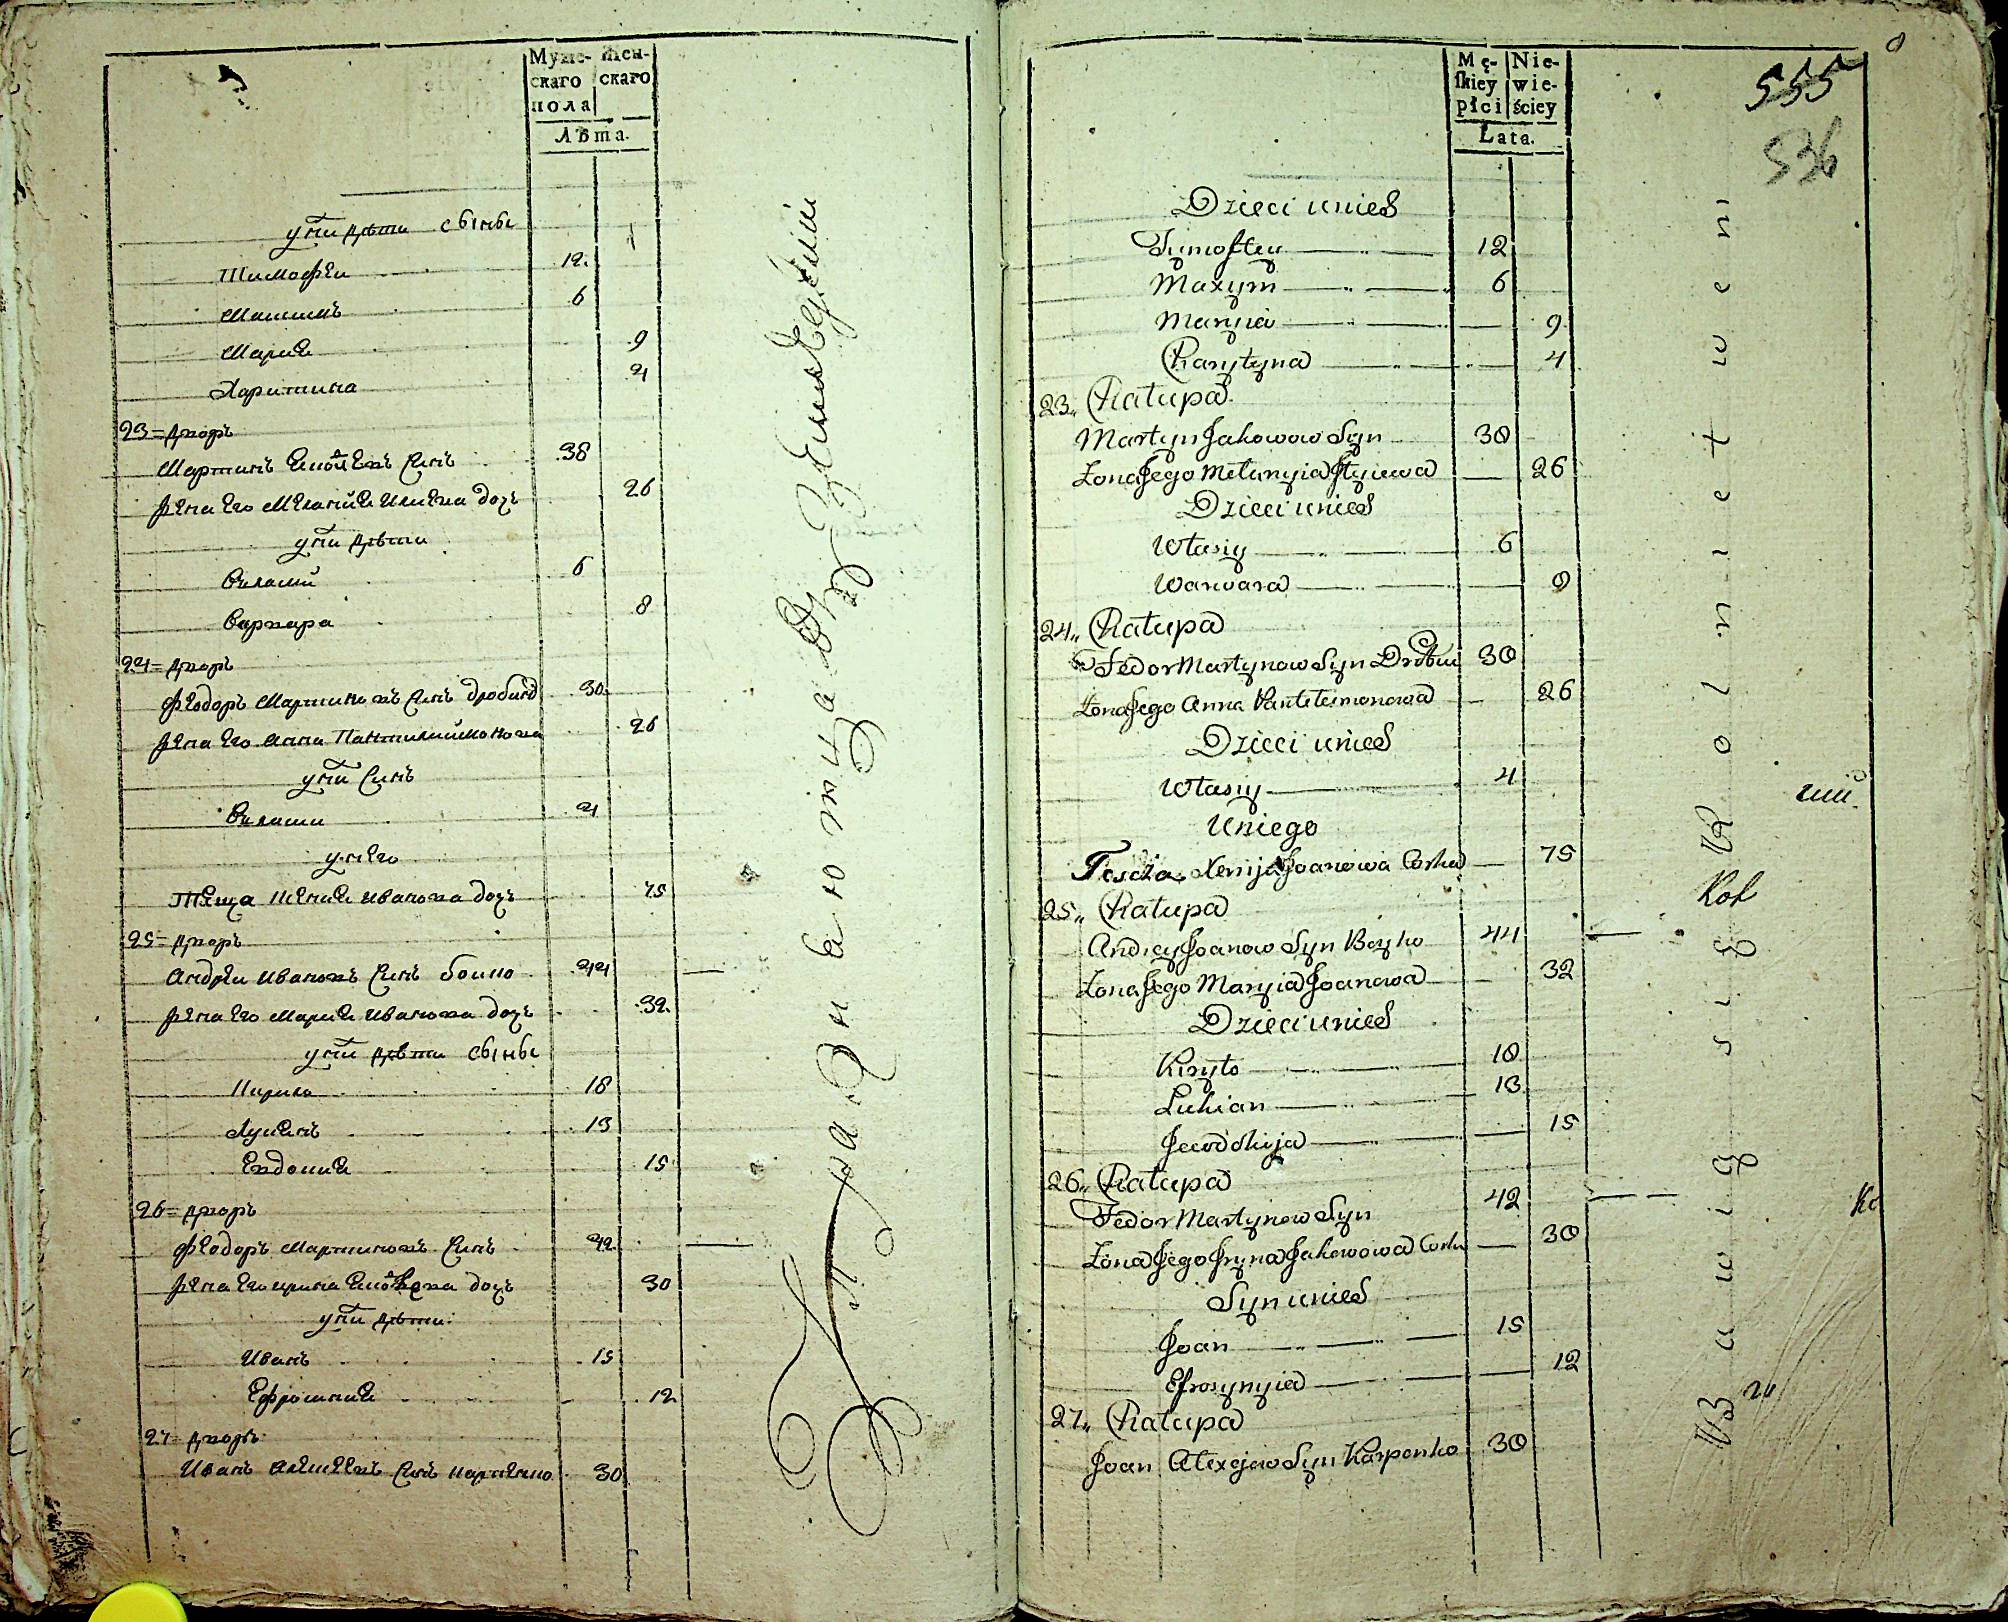 Муже- Жен-
скаго скаго
пола
Лѣта.
у них дѣти сыны
Тимофѣи 12.
Максимъ 6
Мария 9
Харитина 4
23 = дворъ
Мартинъ Яковлевъ сынъ 38
жена его Мелания Илиева дочь 26
у них дѣти
Власий 6
Варвара 8
24 = дворъ
Феодоръ Мартиновъ сынъ 30
жена его Анна Пантилиймонова 26
у них сынъ
Власии 4
у него
Тѣща Ксения Иванова дочь 75
25 = дворъ
Андрѣи Ивановъ сынъ Боико 44
жена его Мария Иванова дочь 32.
у них дѣти сыны
Кирило 18
Лукянъ 13
Евдокия 15
26 = дворъ
Феодоръ Мартиновъ сынъ 42
жена его ирина Яковлева дочь 30
у них дѣти
Иванъ 15
Ефросиния 12
27 = дворъ
Иванъ Алексѣевъ сынъ Карпенко 30
Mę- Nie-
skiey wie-
płci ściey
Lata.
555
536
Dzieci unich
Tymoftey 12
Maxym 6
Maryia 9
Charytyna 4
23„ Chałupa
Martyn Jakowow Syn 38
Żona Jego Melanyia Ilyiewa 26
Dzieci unich
Własiy 6
Warwara 8
24„ Chałupa
Fedor Martynow Syn 30
Żona Jego Anna Pantelemonowa 26
Dzieci unich
Własiy 4
Uniego
Teścia Xenija Joanowa Corka 75
25„ Chałupa
Andrey Joanow Syn Boyko 44
Żona Jego Maryia Joanowa 32
Dzieci unich
Kiryło 18
Lukian 13
Jewdokija 15
26„ Chałupa
Fedor Martynow Syn 42
Żona Jego Iryna Jakowowa Corka 30
Syn unich
Joan 15
Efrosynyia 12
27„ Chałupa
Joan Alexejew Syn Karpenko 30